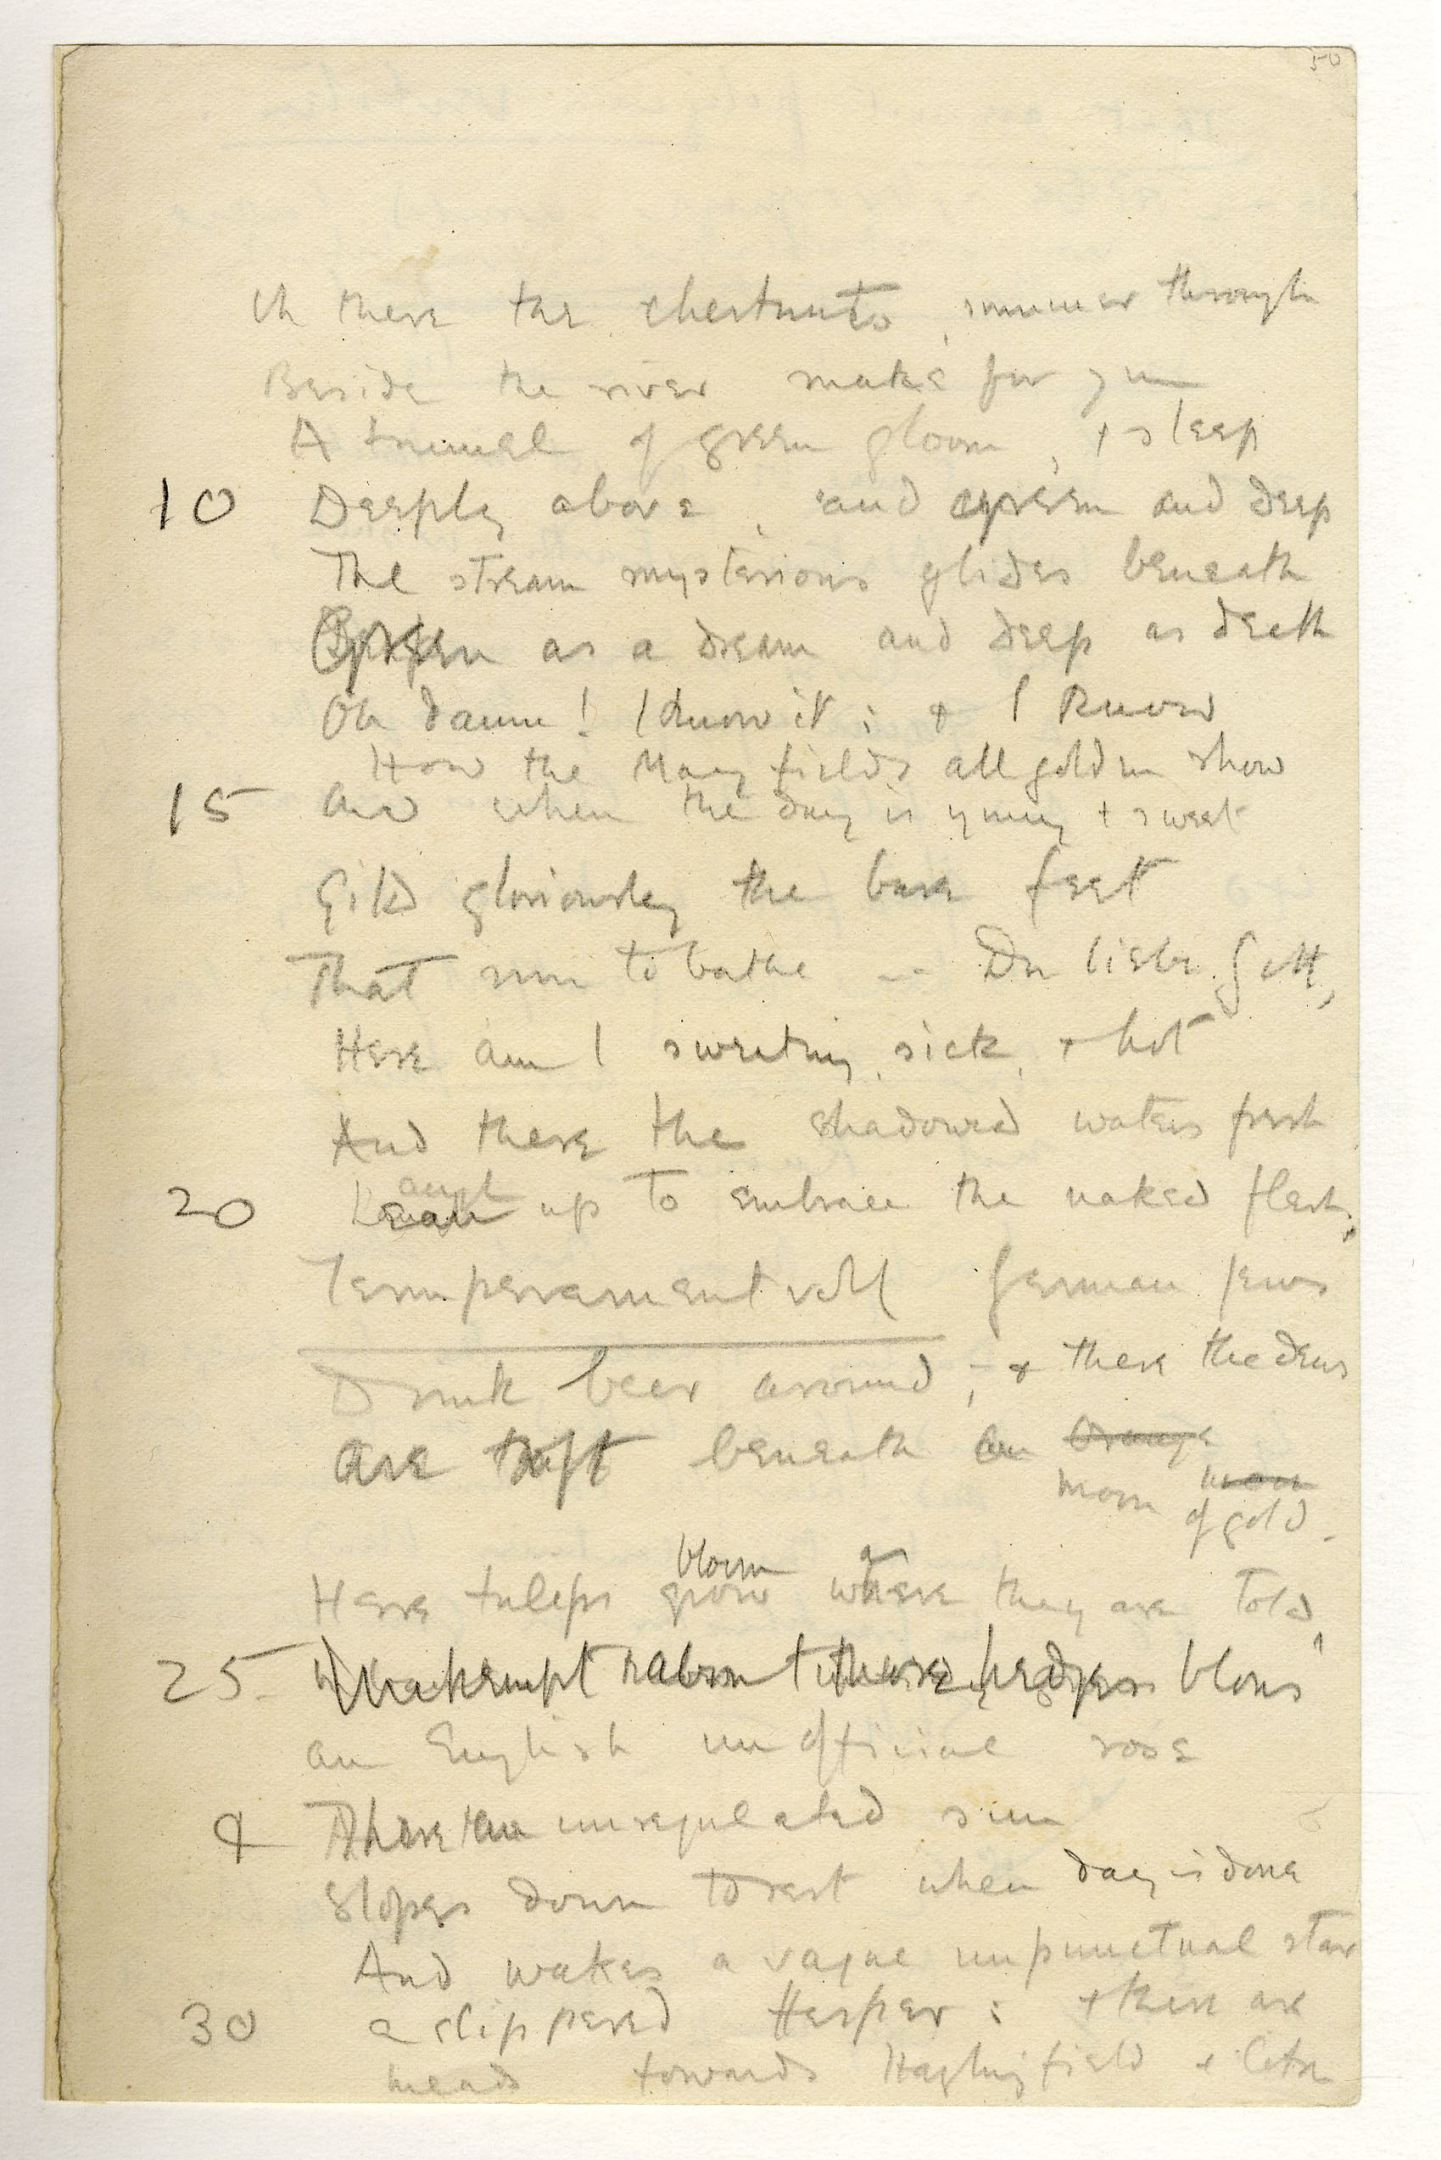 50
Oh there the chestnuts, summer through
Beside the river make for you
A tunnel of green gloom, + sleep
10 Deeply above, and green and deep
The stream mysterious glides beneath
Green as a dream and deep as death
Oh damn! I know it; + I know
How the May fields all golden show
15 And when the day is young + sweet
Gild gloriously the bare feet
That run to bathe -- Du lieber Gott,
Here am I sweating, sick, + hot
And there the shadowed waters fresh
20 Lean up to embrace the naked flesh;
Temperamentvoll German Jews
Drink beer around; - + there the dews
Are soft beneath a moon of gold.
Orange moon
bloom a
Here tulips grow where they are told
25. Unkempt about those hedges blows
an English unofficial rose
& There an unregulated sun
Slopes down to rest when day is done
And wakes a vague unpunctual star
30 a slippered Hesper: + there are
meads towards Haslingfield +